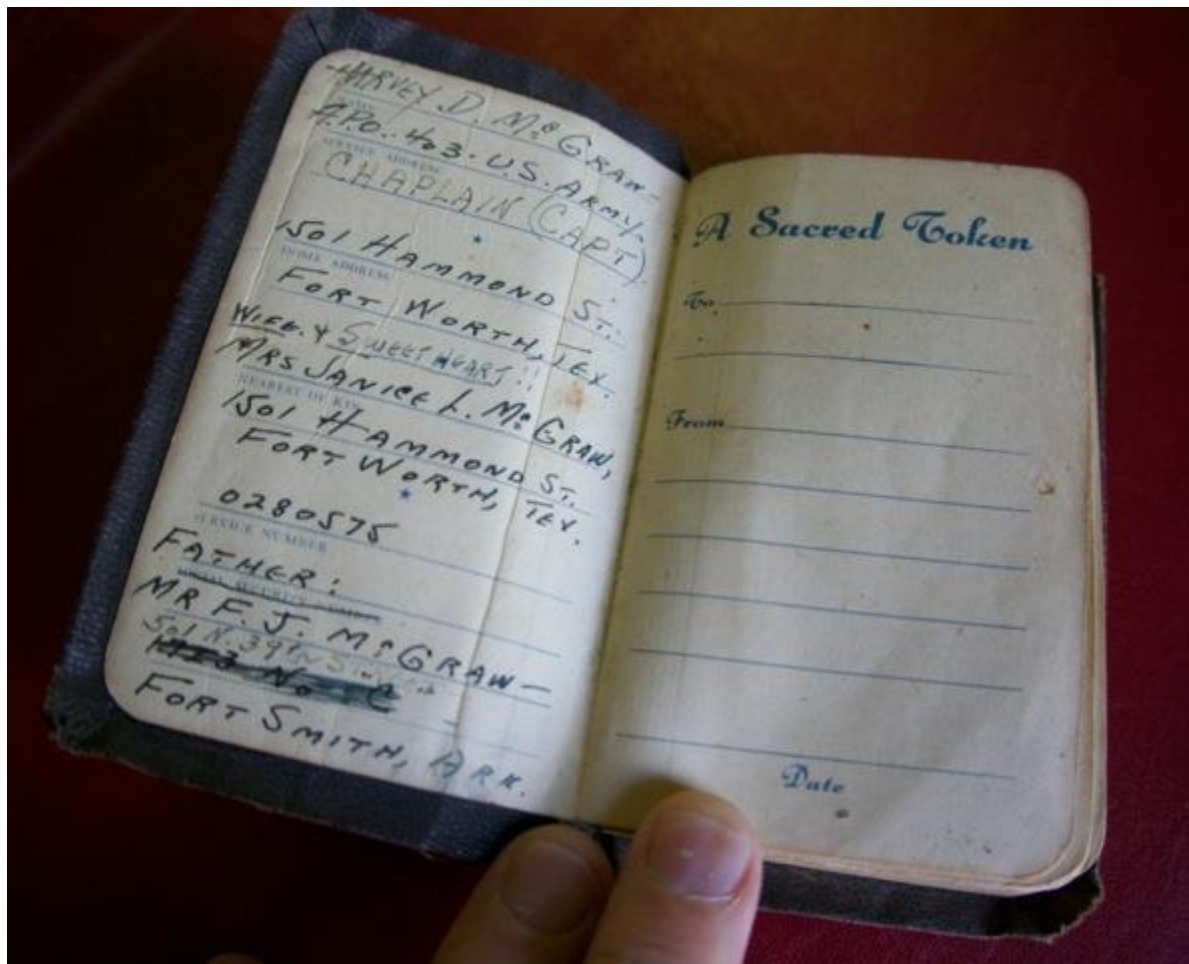 HARVEY D. McGRAW-
A.P.O. 403. U.S. ARMY.
SERVICE ADDRESS
CHAPLAIN (CAPT).
1501 HAMMOND ST.
HOME ADDRESS
FORT WORTH, TEX.
WIFE & SWEETHEART!!
MRS JANICE L. McGRAW,
NEAREST OF KIN
1501 HAMMOND ST.
FORT WORTH, TEX.
0280575
SERVICE NUMBER
FATHER:
SOCIAL SECURITY
MR F. J. McGRAW-
501 N. 39th
FORT SMITH, ARK.
A Sacred Token
To
From
Date